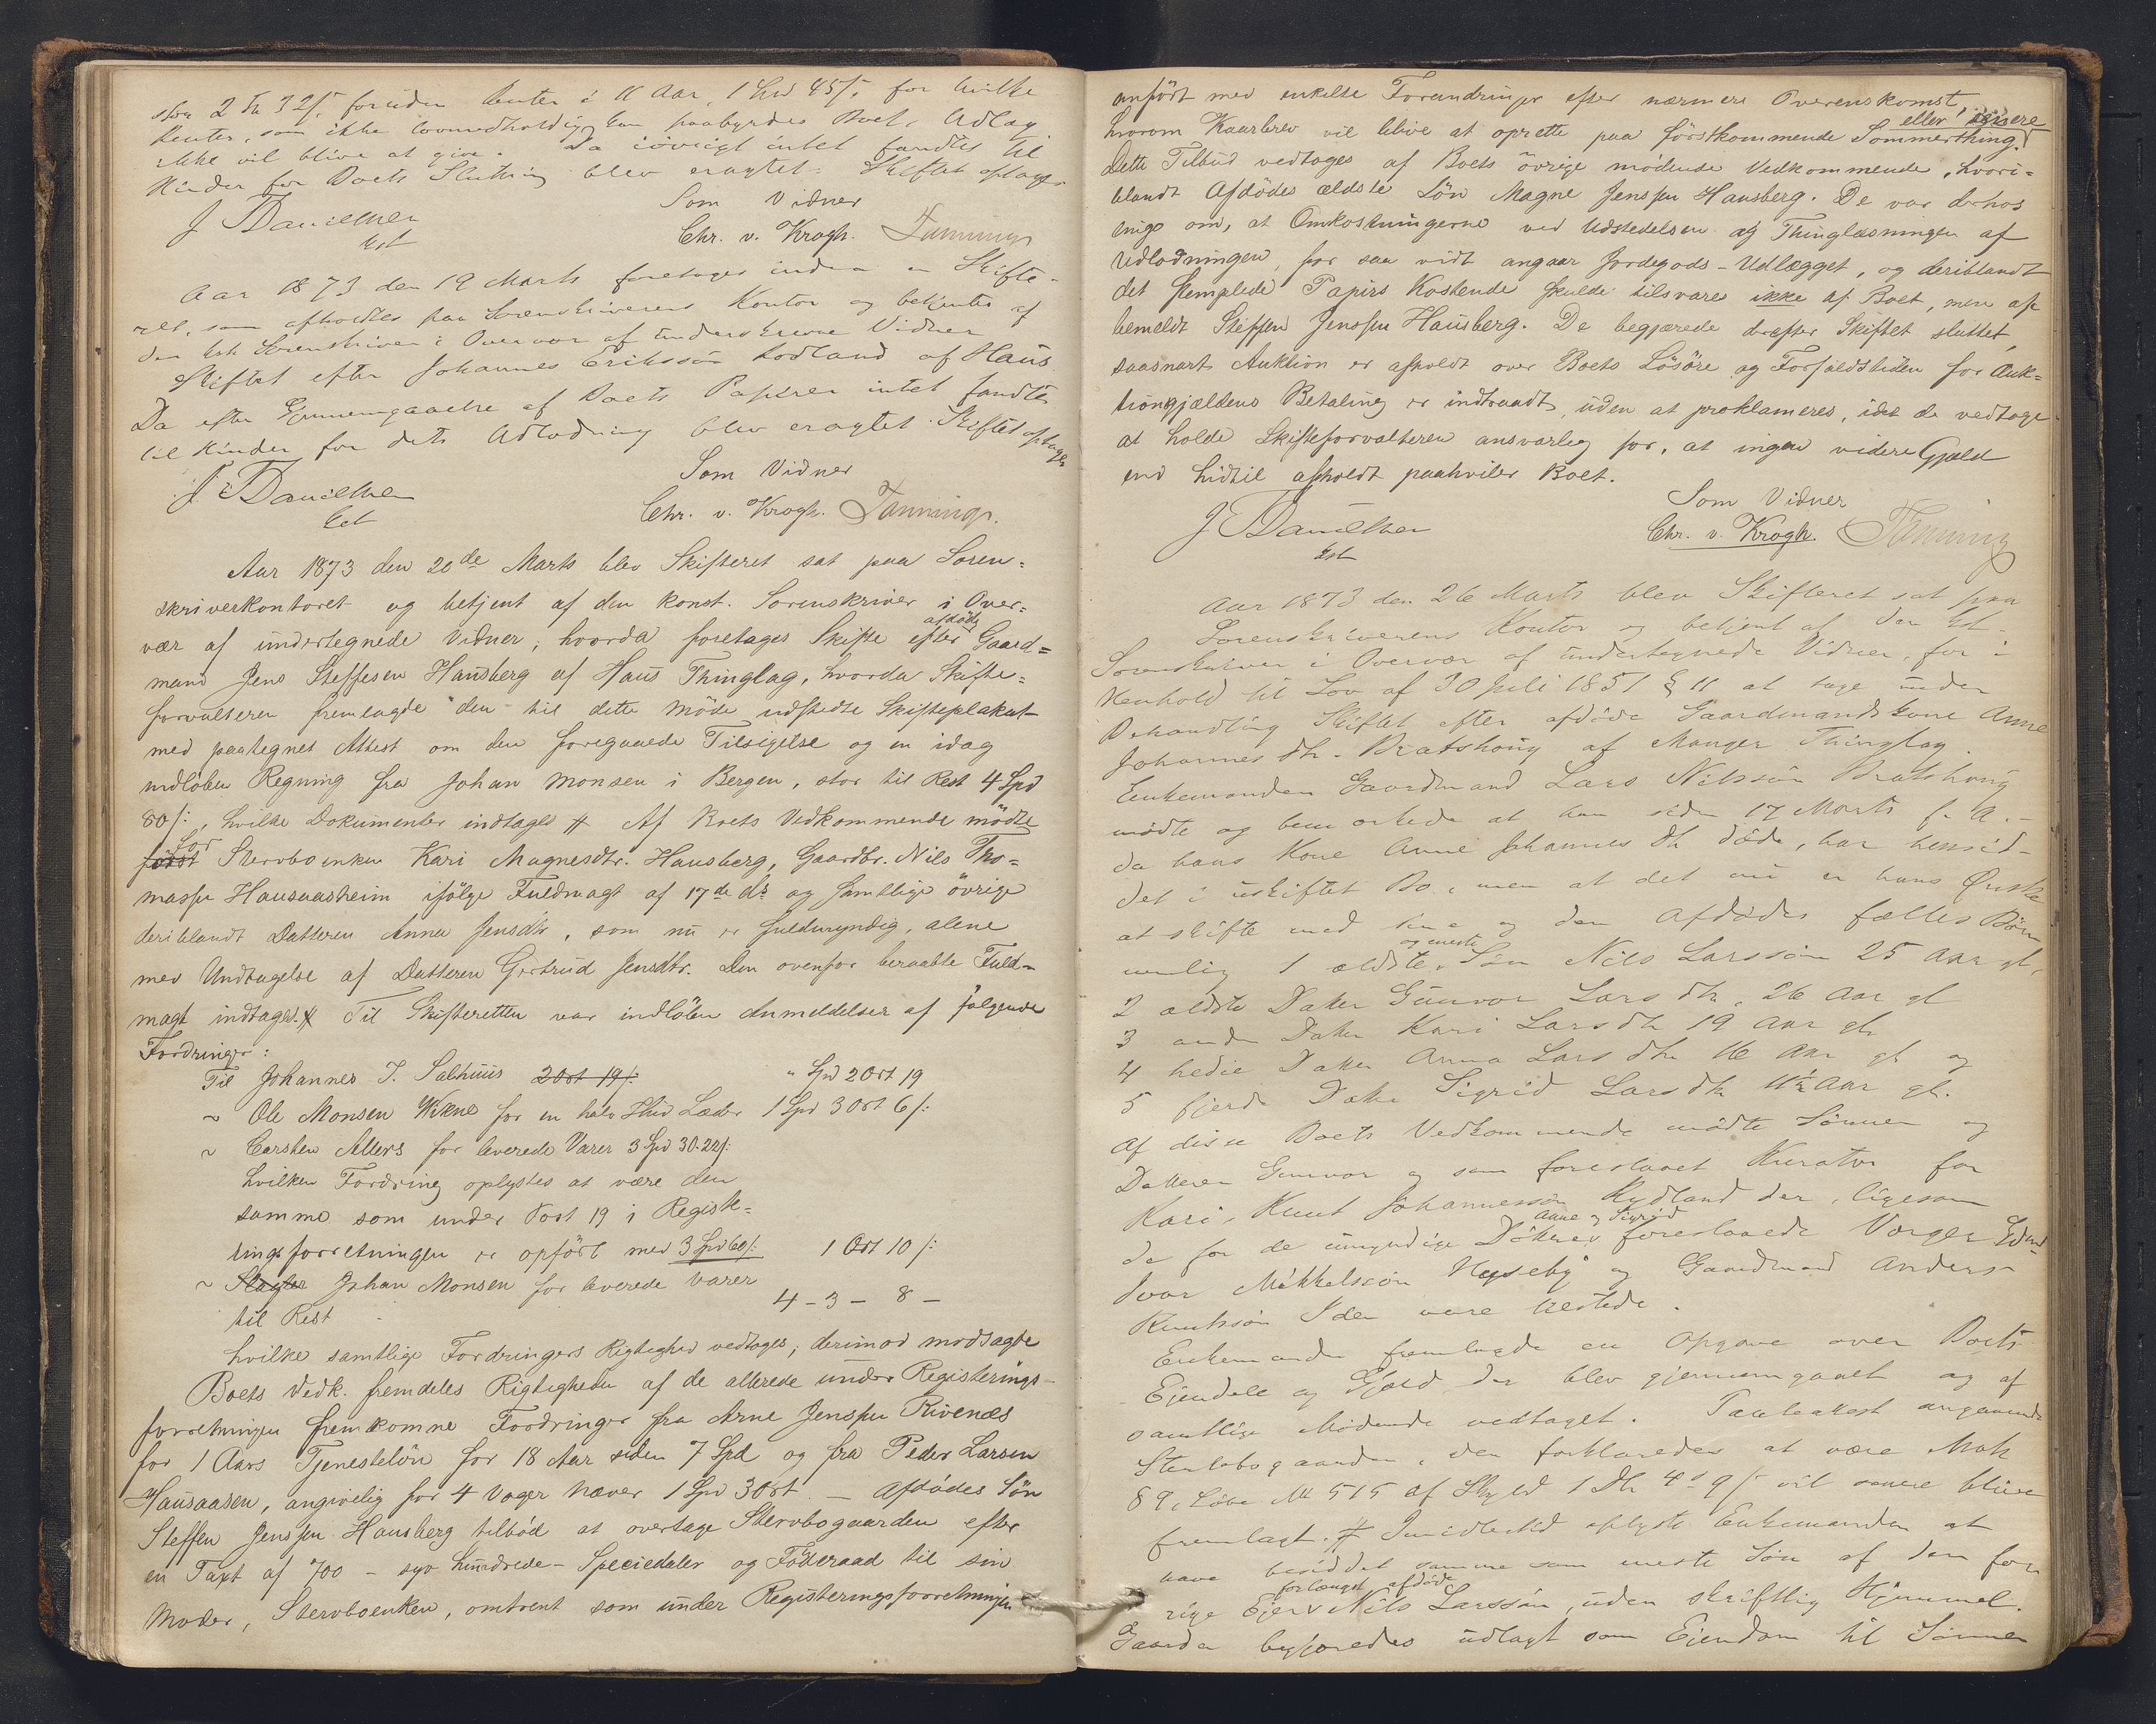 stor 2 Sp 32/: foruden Renter i 11 Aar, 1 Spd 45/: for hvilke
Renter, som ikke lovmedholdig kan paabyrdes Boet, Udlæg
ikke vil blive at give. Da iøvrigt intet fandtes til
Hinder for Boets Slutning blev eragtet: Skiftet optages
J Danielsen
kst
Som Vidner
Chr. v. Krogh.
Aar 1873 den 19 Marts foretoges inden en Skifte-
ret, som afholdtes paa Sorenskriverens Kontor og betjentes af
den kst Sorenskriver i Overvær af underskrevne Vidner
Skiftet efter Johannes Erikssøn Lodland af Haus.
Da efter Gjennemgaaelse af Boets Papirer intet fandtes
til Hinder for dets Udlodning blev eragtet: Skiftet optages
J Danielsen
kst
Som Vidner
Chr. v. Krogh.
Aar 1873 den 20de Marts blev Skifteret sat paa Soren-
skriverkontoret og betjent af den konst. Sorenskriver i Over-
vær af undertegnede Vidner, hvorda foretoges Skifte efter afdøde Gaard-
mand Jens Steffesen Hausberg af Haus Thinglag, hvorda Skifte-
forvalteren fremlagde den til dette Møde udstedte Skifteplakat
med paategnet Attest om den foregaaede Tilsigelse og en idag
indløben Regning fra Johan Monsen i Bergen, stor til Rest 4 Spd
80/:, hvilke Dokumenter indtages # Af Boets Vedkommende mødte
for Stervboenken Kari Magnesdtr. Hausberg, Gaardbr. Nils Tho-
massen Hausaasheim ifølge Fuldmagt af 17de ds og samtlige øvrige
deriblandt Datteren Anna Jensdtr, som nu er fuldmyndig, alene
med Undtagelse af Datteren Gjertrud Jensdtr. Den ovenfor beraabte Fuld-
magt indtages. # Til Skifteretten var indløben Anmeldelser af følgende
Fordringer:
Til Johannes J. Salhuus 2 Ort 19/: " Spd 2 Ort 19
~ Ole Monsen Vikne for en halv Hud Læder 1 Spd 3 Ort 6/:
~ Carsten Allers for leverede Varer 3 Spd 3O. 22/:
hvilken Fordring oplystes at være den
samme som under Post 19 i Registe-
ringsforretningen er opført med 3 Spd 60/: 1 Ort 10/:
~ Slagter Johan Monsen for leverede Varer
til Rest 4 - 3 - 8 -
hvilke samtlige Fordringers Rigtighed vedtoges; derimod modsagde
Boets Vedk. fremdeles Rigtigheden af de allerede under Registerings-
forretningen fremkomne Fordringer fra Arne Jensen Rivenæs
for 1 Aars Tjenesteløn for 18 Aar siden 7 Spd og fra Peder Larsen
Hausaasen, angivelig for 4 Voger Næver 1 Spd 3 Ort. — Afdødes Søn
Steffen Jensen Hausberg tilbød at overtage Stervbogaarden efter
en Taxt af 700 - syv hundrede - Speciedaler og Føderaad til sin
Moder, Stervboenken, omtrent som under Registeringsforretningen
anført med enkelte Forandringer efter nærmere Overenskomst,
hvorom Kaarbrev vil blive at oprette paa førstkommende Sommerthing. eller senere
Dette Tilbud vedtoges af Boets øvrige mødende Vedkommende, hvori-
blandt Afdødes ældste Søn Magne Jensen Hausberg. De var derhos
enige om, at Omkostningerne ved Udstedelsen og Thinglæsningen af
Udlodningen, for saa vidt angaar Jordegods-Udlægget, og deriblandt
det stemplede Papirs Kostende skulde tilsvares ikke af Boet, men af
bemeldt Steffen Jensen Hausberg. De begjærede derefter Skiftet sluttet,
saasnart Auktion er afholdt over Boets Løsøre og Forfaldstiden for Auk-
tionsgjældens Betaling er indtraadt, uden at proklameres, idet de vedtoge
at holde Skifteforvalteren ansvarlig for, at ingen videre Gjæld
end hidtil afholdt paahviler Boet.
J Danielsen
kst
Som Vidner
Chr. v. Krogh.
Aar 1873 den 26 Marts blev Skifteret sat paa
Sorenskriverens Kontor og betjent af den kst
Sorenskriver i Overvær af undertegnede Vidner, for i
Henhold til Lov af 30 Juli 1851 § 11 at tage under
Behandling Skiftet efter afdøde Gaardmandskone Anne
Johannes Dtr. Bratshoug af Manger Thinglag.
Enkemanden Gaardmand Lars Nilssøn Bratshoug
mødte og bemærkede at han siden 17 Marts f. A.
da hans Kone Anne Johannes Dtr døde, har hensid-
det i uskiftet Bo, men at det nu er hans Ønske
at skifte med sine og den Afdødes fælles Børn
nemlig 1 ældste og eneste Søn Nils Larssøn 25 Aar gl.
2 ældste Datter Gunvor Lars Dtr. 26 Aar gl
3 anden Datter Kari Lars Dtr 19 Aar gl.
4 tredie Datter Anna Lars Dtr 16 Aar gl og
5 fjerde Datter Sigrid Lars Dtr 11½ Aar gl.
Af disse Boets Vedkommende mødte Sønnen og
Datteren Gunvor og som foreslaaet Kurator for
Kari, Knut Johannessøn Rydland der, ligesom
de for de umyndige Døttre Anne og Sigrid foreslaaede Værger Gdmd
Ivar Mikkelssøn Hopseby og Gaardmand Anders
Knutssøn Iden være tilstede.
Enkemanden fremlagde en Opgave over Boets
Ejendele og Gjæld der blev gjennemgaaet og af
samtlige Mødende vedtaget. Taxtakest angaaende
Stervbogaarden, den forklaredes at være Matr
89, Løbe No 515 af Skyld 1 Dlr 4 9/: vil senere blive
fremlagt. # Imidlertid oplyste Enkemanden at
have besiddet samme som eneste Søn af den for-
rige Ejer forlængst afdøde Nils Larssøn, uden skriftlig Hjemmel.
Gaarden begjæredes udlagt som Ejendom til Sønnen